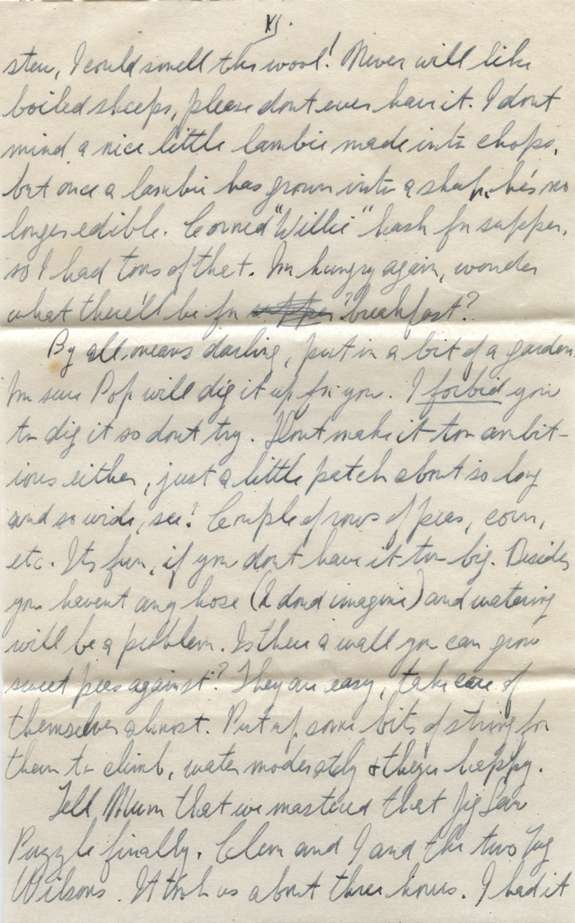 XI.
stew, I could smell the wool! Never will like
boiled sheeps, please dont ever have it. I dont
mind a nice little lambie made into chops,
but once a lambie has grown into a sheep, he's no
longer edible. Corned "Willie" hash for supper,
so I had tons of that. Im hungry again, wonder
what there'll be for supper? breakfast?
By all means darling, put in a bit of a garden.
Im sure Pop will dig it up for you. I forbid you
to dig it so dont try. Dont make it too ambit-
ious either, just a little patch about so long
and so wide, see! Couple of rows of peas, corn,
etc. Its fun, if you dont have it too big. Besides
you havent any hose (I dont imagine) and watering
will be a problem. Is there a wall you can grow
sweet peas against? They are easy, take care of
themselves almost. Put up some bits of string for
them to climb, water moderately & they're happy.
Tell Mum that we mastered that Jig Saw
Puzzle finally. Clem and I and the two
Wilsons. It took us about three hours. I had it